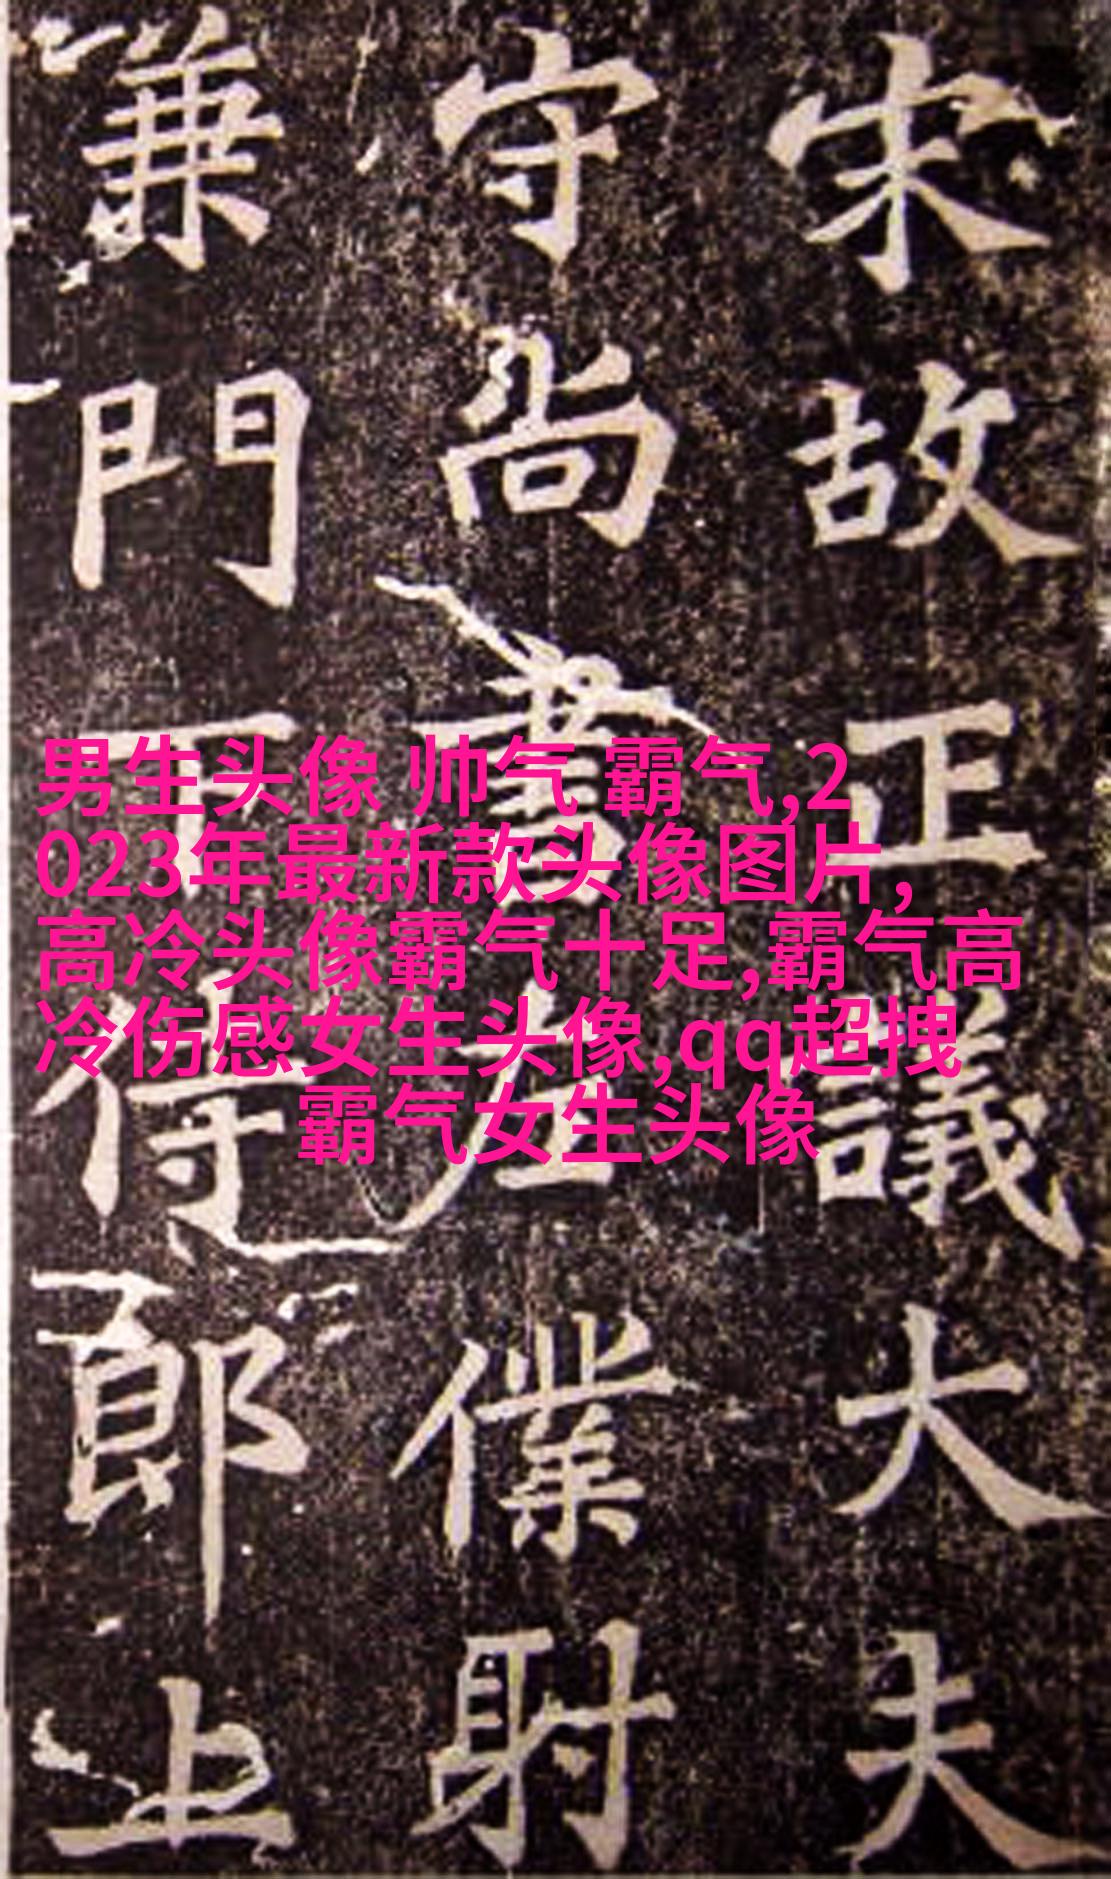 宋故正議大夫
守尚書左僕射
兼門下侍郎上
男生头像 帅气 霸气,2
023年最新款头像图片,
高冷头像霸气十足,霸气高
冷伤感女生头像,qq超拽
霸气女生头像